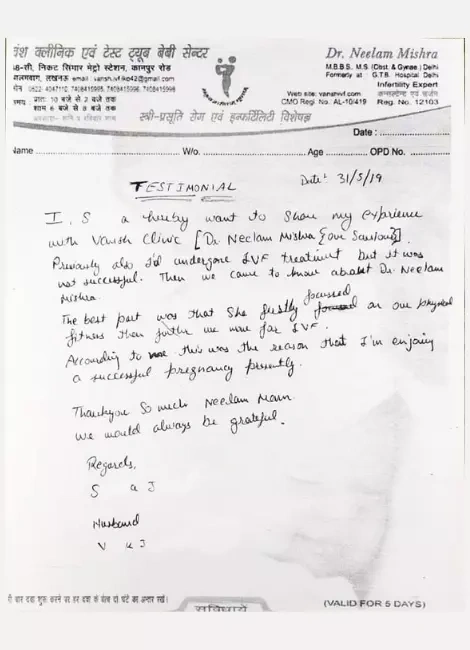 वंश क्लीनिक एवं टेस्ट ट्यूब बेबी सेन्टर
निकट सिंगार मेट्रो स्टेशन, कानपुर रोड
आलमबाग, लखनऊ email : vanshivf.lko42@gmail.com
फोन 0522 4047112, 7408415995, 7408415996, 7408415998
समय : प्रातः 10 बजे से 2 बजे तक
शाम 6 बजे से 8 बजे तक
Dr. Neelam Mishra
M.B.B.S., M.S. (Obst. & Gynae.) Delhi
Formerly at G.T.B. Hospital Delhi
Infertility Expert
Web site: vanshivf.com
CMO Regi. No. AL-10/419 Reg. No. 12103
स्त्री-प्रसूति रोग एवं इन्फर्टिलिटी विशेषज्ञ
Date :
Name W/o. Age OPD No.
Date: 31/5/19
TESTIMONIAL
I, S a hereby want to share my experience
with Vansh Clinic [Dr. Neelam Mishra
Previously also I'd undergone IVF treatment but it was
not successful. Then we came to know about Dr. Neelam
Mishra.
The best part was that She firstly focused on our physical
fitness then further we move for IVF.
According to me this was the reason that I'm enjoying
a successful pregnancy presently.
Thankyou So much Neelam Mam.
We would always be grateful.
Regards,
S a J
Husband
V K J
(VALID FOR 5 DAYS)